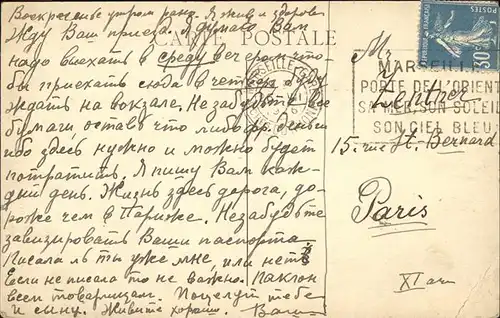 Воскресенье утром рано. Я жив и здоров.
Жду Ваш приезд. Я думаю Вам
надо выехать в среду вечером что-
бы приехать сюда в четверг. Я буду
ждать на вокзале. Не забудьте все
бумаги, оставь что либо
ибо здесь нужно и можно будет
потратить. Я пишу Вам каж-
дый день. Жизнь здесь дорога, до-
роже чем в Париже. Не забудьте
завизировать Ваши паспорта.
Писала ль ты уже мне, или нет?
Если не писала то не важно. Паклон
всем товарищам. Поцелуй тебе
и сыну. Живите хорошо. Ваш
CARTE POSTALE
POSTES
30c
MARSEILLE
PORTE DE L'ORIENT
SA MER, SON SOLEIL
SON CIEL BLEU
Mr
15, rue St. Bernard
Paris
XI arr